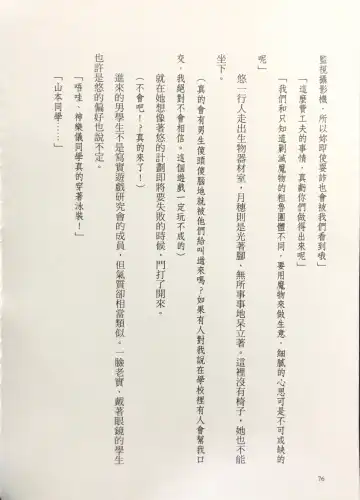 監視攝影機，所以妳即使要詐也會被我們看到哦」
「這麼費工夫的事情，真虧你們做得出來呢」
「我們和只知道剿滅魔物的粗魯團體不同，要用魔物來做生意，細膩的心思可是不可或缺的
呢」
悠一行人走出生物器材室，月穗則是光著腳，無所事事地呆立著。這裡沒有椅子，她也不能
坐下。
（真的會有男生傻頭傻腦地就被他們給叫過來嗎？如果有人對我說在學校裡有人會幫我口
交，我絕對不會相信。這個遊戲一定玩不成的）
就在她想像著悠的計劃即將要失敗的時候，門打了開來。
（不會吧！？真的來了！）
進來的男學生不是寫實遊戲研究會的成員，但氣質卻相當類似。一臉老實、戴著眼鏡的學生
也許是悠的偏好也說不定。
「唔哇、神樂儀同學真的穿著泳裝！」
「山本同學……」
76